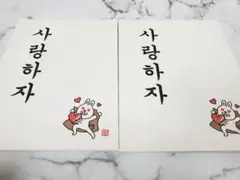 사랑하자
사랑하자